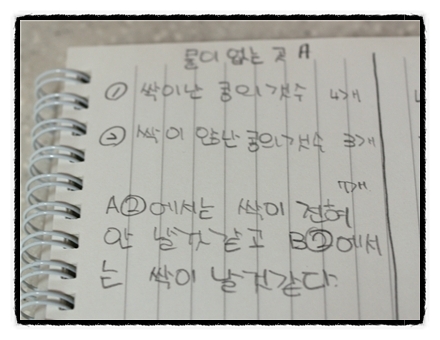 물이 없는 곳 A
① 싹이난 콩의갯수 4개
② 싹이 안난콩의갯수 3개
7개
A②에서는 싹이 전혀
안 날것 같고 B②에서
는 싹이 날것같다.